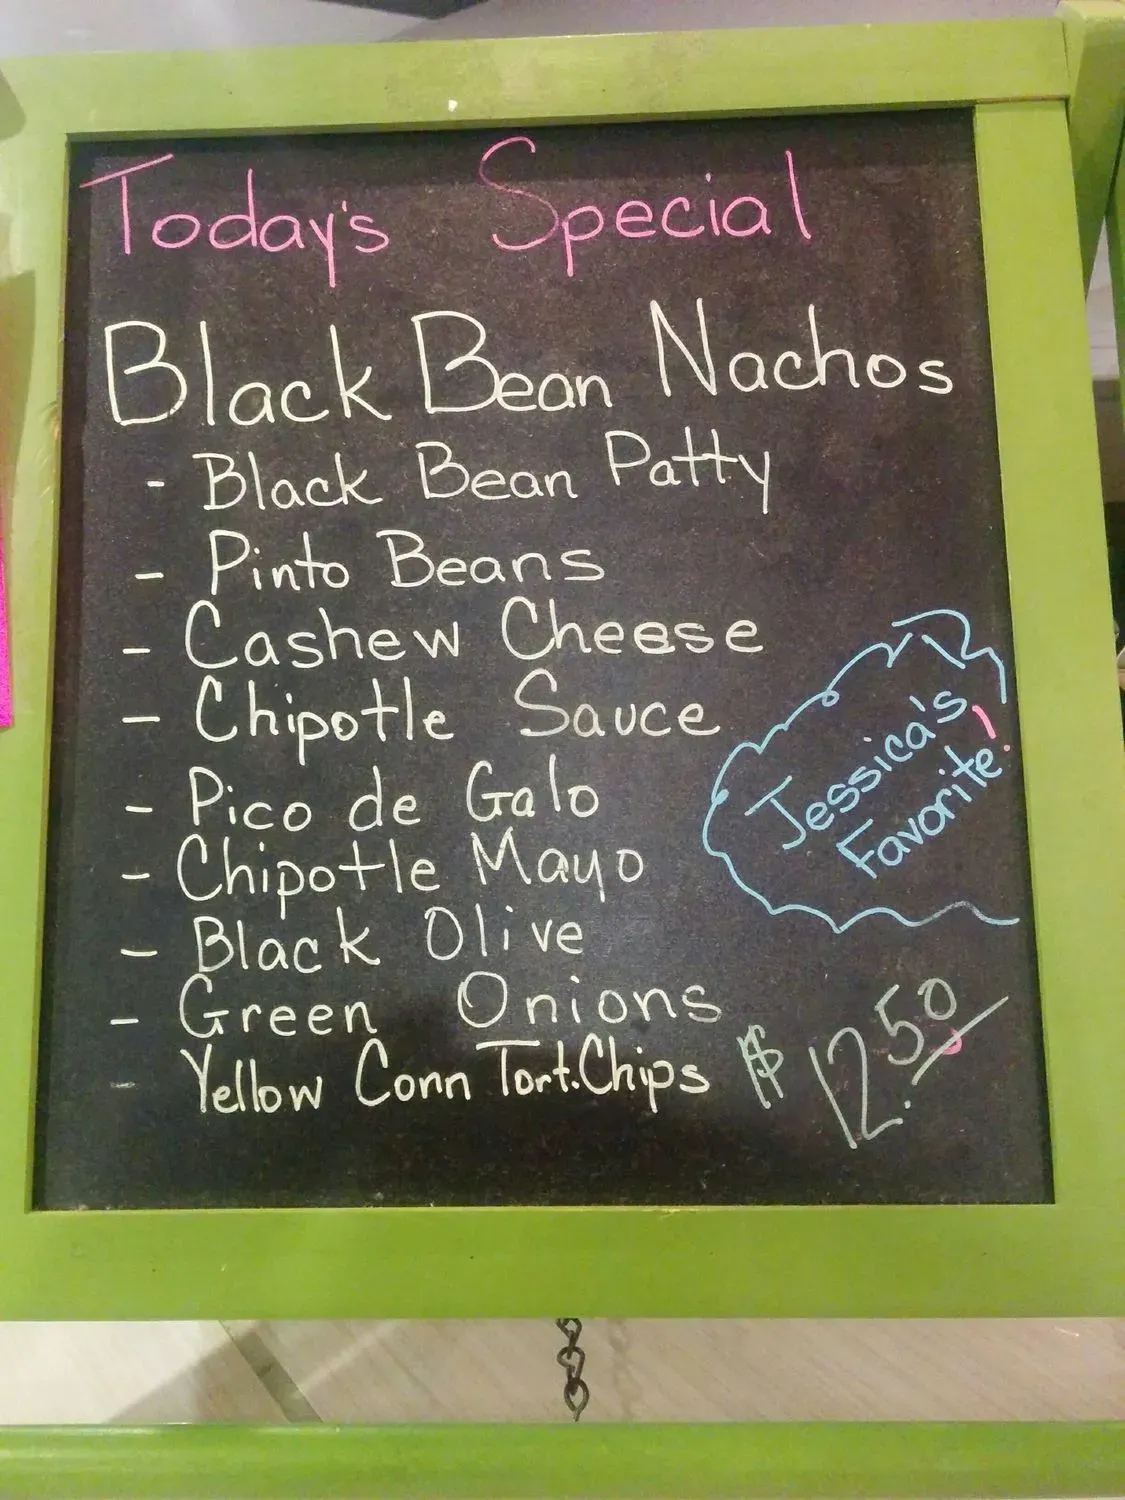 Today's Special
Black Bean Nachos
- Black Bean Patty
- Pinto Beans
- Cashew Cheese
- Chipotle Sauce
- Pico de Galo
- Chipotle Mayo
- Black Olive
- Green Onions
- Yellow Conn Tort.Chips
Jessica's
Favorite!
$12.50